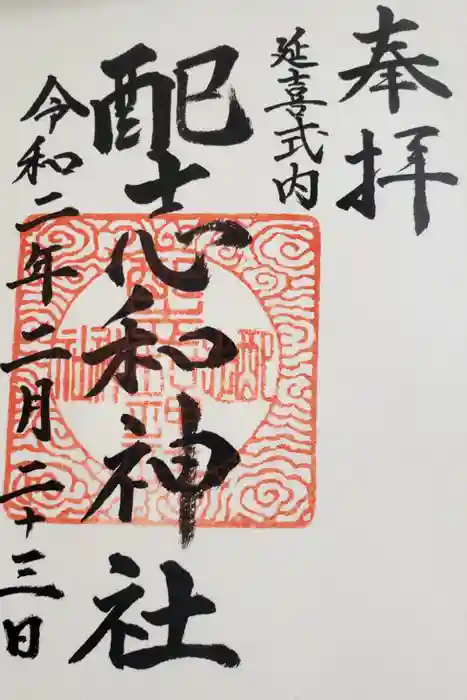 奉拝
延喜式内
配志和神社
令和二年二月二十三日